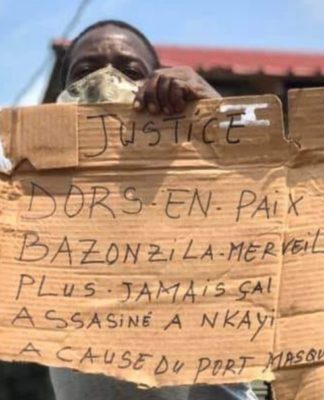 JUSTICE
DORS-EN-PAIX
BAZONZILA-MERVEIL
PLUS-JAMAIS ÇA!
ASSASINÉ A NKAYI
A CAUSE DU PORT MASQU